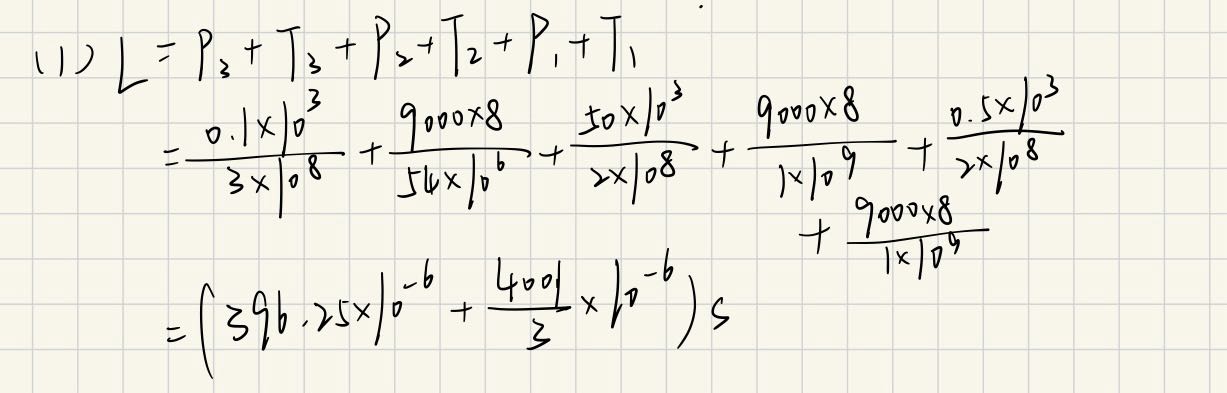 (1) L = P₃ + T₃ + P₂ + T₂ + P₁ + T₁
= (0.1×10³)/(3×10⁸) + (9000×8)/(54×10⁶) + (50×10³)/(2×10⁸) + (9000×8)/(1×10⁹) + (0.5×10³)/(2×10⁸)
+ (9000×8)/(1×10⁹)
= (396.25×10⁻⁶ + 4001/3 ×10⁻⁶) s